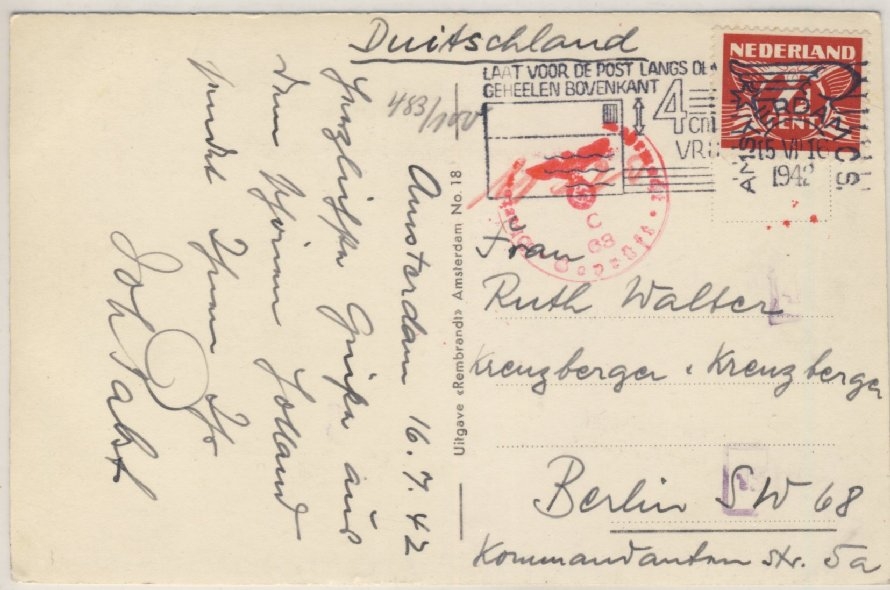 Duitschland
LAAT VOOR DE POST LANGS DE
GEHEELEN BOVENKANT
4 cm
VRIJ
NEDERLAND
CENT
AMSTERDAM CS
15 VII 16
1942
483/100
C
68
Geprüft
Frau
Ruth Walter
Kreuzberger & Kreuzberger
Berlin SW 68
Kommandanten str. 5a
Uitgave «Rembrandt» Amsterdam No. 18
Amsterdam 16.7.42
Herzlichste Grüße aus
dem schönen Holland
sendet Ihnen Ihr
Joh Pabst